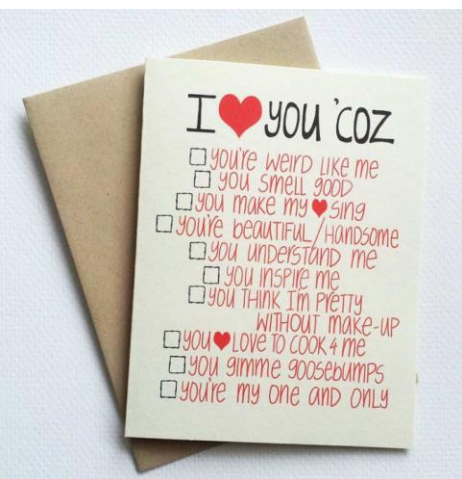 I ❤ you 'coz
☐ you're weird like me
☐ you smell good
☐ you make my ❤ sing
☐ you're beautiful/handsome
☐ you understand me
☐ you inspire me
☐ you think I'm pretty
without make-up
☐ you ❤ love to cook 4 me
☐ you gimme goosebumps
☐ you're my one and only